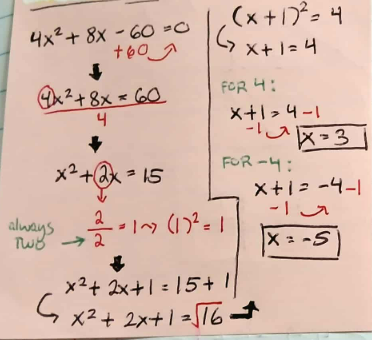 4x² + 8x - 60 = 0
+60
4x² + 8x = 60
4
x² + 2x = 15
always two → 2/2 = 1 ~> (1)² = 1
x² + 2x + 1 = 15 + 1
x² + 2x + 1 = √16
(x + 1)² = 4
x + 1 = 4
FOR 4:
x + 1 = 4 - 1
-1
x = 3
FOR -4:
x + 1 = -4 - 1
-1
x = -5